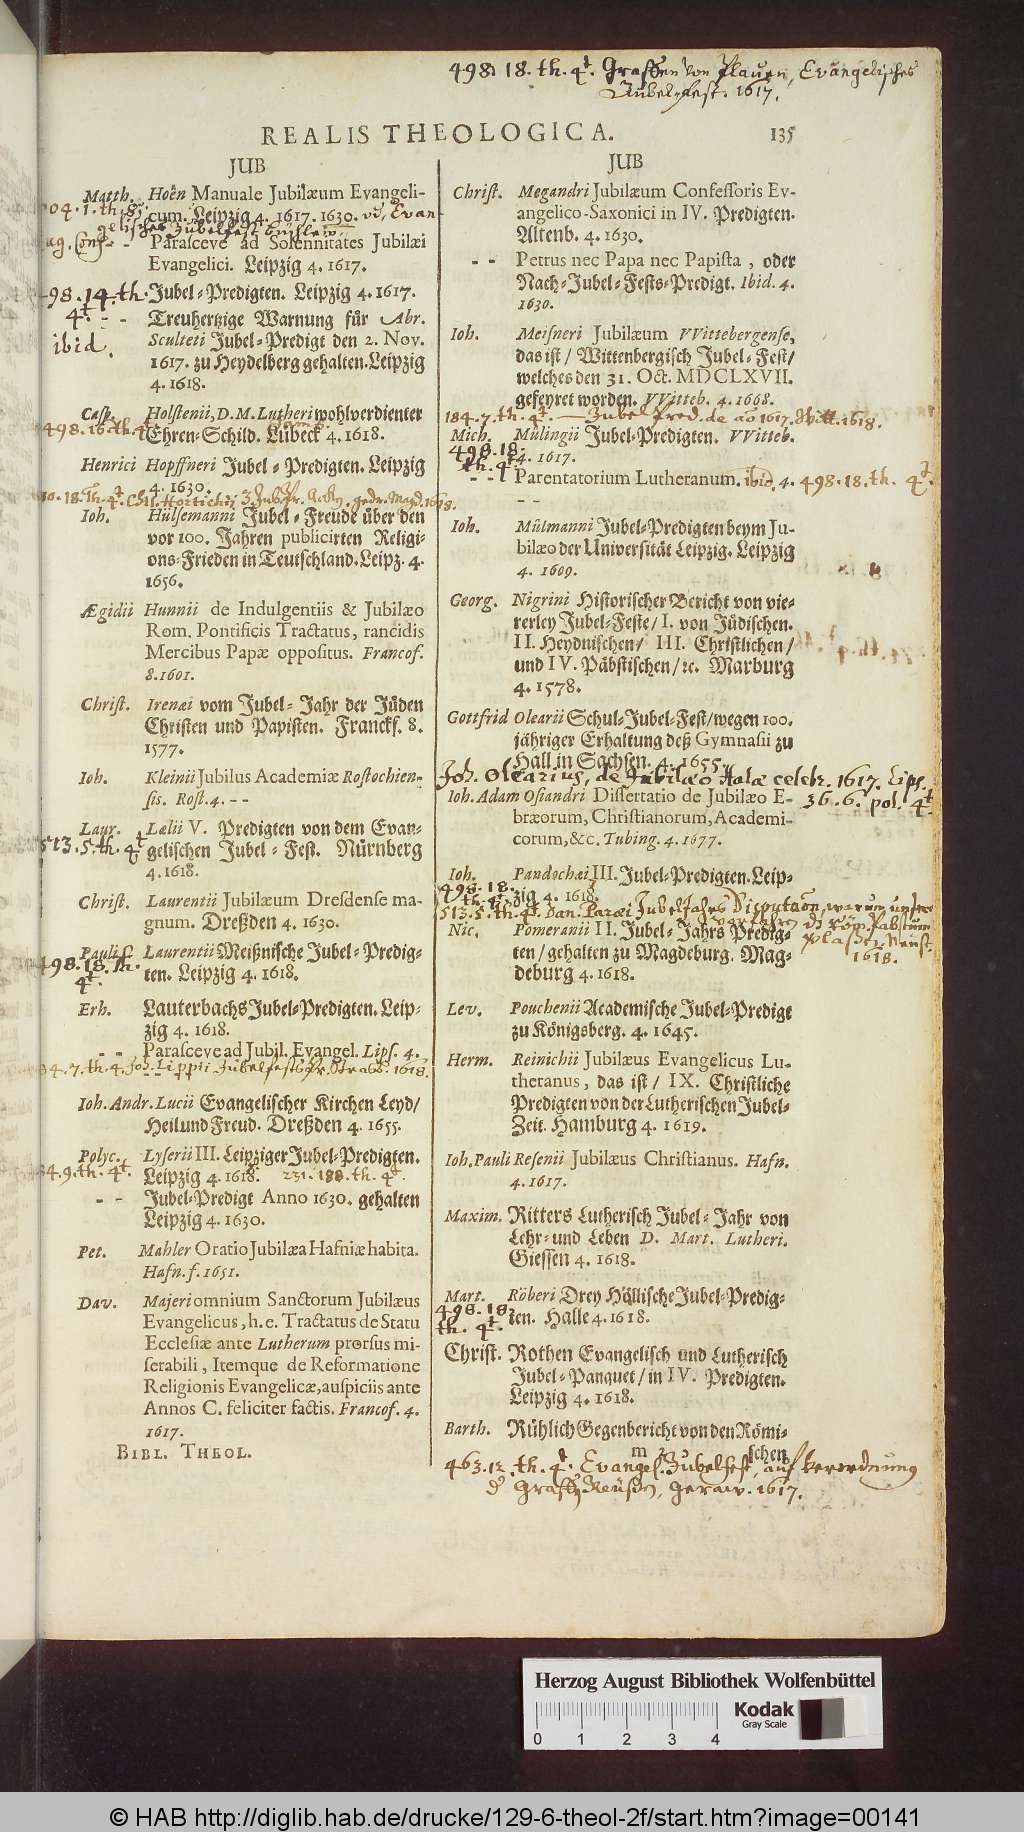 498. 18. th. 4t. Graffen von Plauen, Evangelisches
Jubel-fest. 1617.
REALIS THEOLOGICA. 135
JUB
Matth. Hoën Manuale Jubilæum Evangeli-
cum. Leipzig 4. 1617. 1630.
- - Parasceve ad Solennitates Jubilæi
Evangelici. Leipzig 4. 1617.
498. 14. th. Jubel-Predigten. Leipzig 4. 1617.
4t. - - Treuhertzige Warnung für Abr.
ibid. Sculteti Jubel-Predigt den 2. Nov.
1617. zu Heydelberg gehalten. Leipzig
4. 1618.
Casp. Holstenii, D. M. Lutheri wohlverdienter
Ehren-Schild. Lübeck 4. 1618.
Henrici Hopffneri Jubel-Predigten. Leipzig
4. 1630.
Ioh. Hülsemanni Jubel-Freude über den
vor 100. Jahren publicirten Religi-
ons-Frieden in Teutschland. Leipz. 4.
1656.
Ægidii Hunnii de Indulgentiis & Jubilæo
Rom. Pontificis Tractatus, rancidis
Mercibus Papæ oppositus. Francof.
8. 1601.
Christ. Irenæi vom Jubel-Jahr der Jüden
Christen und Papisten. Franckf. 8.
1577.
Ioh. Kleinii Jubilus Academiæ Rostochien-
sis. Rost. 4. - -
Laur. Lælii V. Predigten von dem Evan-
513. 5. th. 4t gelischen Jubel-Fest. Nürnberg
4. 1618.
Christ. Laurentii Jubilæum Dresdense ma-
gnum. Dreßden 4. 1630.
Pauli S. Laurentii Meißnische Jubel-Predig-
498. 18. th. ten. Leipzig 4. 1618.
4t.
Erh. Lauterbachs Jubel-Predigten. Leip-
zig 4. 1618.
- - Parasceve ad Jubil. Evangel. Lips. 4.
- -
Ioh. Andr. Lucii Evangelischer Kirchen Leyd/
Heil und Freud. Dreßden 4. 1655.
Polyc. Lyserii III. Leipziger Jubel-Predigten.
Leipzig 4. 1618.
- - Jubel-Predigt Anno 1630. gehalten
Leipzig 4. 1630.
Pet. Mahler Oratio Jubilæa Hafniæ habita.
Hafn. f. 1651.
Dav. Majeri omnium Sanctorum Jubilæus
Evangelicus, h. e. Tractatus de Statu
Ecclesiæ ante Lutherum prorsus mi-
serabili, Itemque de Reformatione
Religionis Evangelicæ, auspiciis ante
Annos C. feliciter factis. Francof. 4.
1617.
BIBL. THEOL.
JUB
Christ. Megandri Jubilæum Confessoris Ev-
angelico-Saxonici in IV. Predigten.
Altenb. 4. 1630.
- - Petrus nec Papa nec Papista, oder
Nach-Jubel-Fests-Predigt. Ibid. 4.
1630.
Ioh. Meisneri Jubilæum VVittebergense,
das ist/ Wittenbergisch Jubel-Fest/
welches den 31. Oct. MDCLXVII.
gefeyret worden. VVitteb. 4. 1668.
184. 7. th. 4t.
Mich. Mülingii Jubel-Predigten. VVitteb.
498. 18. 4. 1617.
th. 4t.
- - Parentatorium Lutheranum. ibid. 4. 498. 18. th. 4t.
- -
Ioh. Mülmanni Jubel-Predigten beym Ju-
bilæo der Universität Leipzig. Leipzig
4. 1609.
Georg. Nigrini Historischer Bericht von vie-
rerley Jubel-Feste/ I. von Jüdischen.
II. Heydnischen/ III. Christlichen/
und IV. Päbstischen/ ꝛc. Marburg
4. 1578.
Gottfrid Olearii Schul-Jubel-Fest/ wegen 100.
jähriger Erhaltung deß Gymnasii zu
Hall in Sachsen. 4. 1655.
Joh. Olearius, de Jubilæo Halæ celebr. 1617. Lips.
36. 6. pol. 4t.
Ioh. Adam Osiandri Dissertatio de Jubilæo E-
bræorum, Christianorum, Academi-
corum, &c. Tubing. 4. 1677.
Ioh. Pandochæi III. Jubel-Predigten. Leip-
498. 18. th. 4t. zig 4. 1618.
513. 5. th. 4t. Dan. Paræi Jubel Jahrs Disputation, warum unsere
Vorfahren
Neust.
1618.
Nic. Pomeranii II. Jubel-Jahrs Predig-
ten/ gehalten zu Magdeburg. Mag-
deburg 4. 1618.
Lev. Pouchenii Academische Jubel-Predigt
zu Königsberg. 4. 1645.
Herm. Reinichii Jubilæus Evangelicus Lu-
theranus, das ist/ IX. Christliche
Predigten von der Lutherischen Jubel-
Zeit. Hamburg 4. 1619.
Ioh. Pauli Resenii Jubilæus Christianus. Hafn.
4. 1617.
Maxim. Ritters Lutherisch Jubel-Jahr von
Lehr- und Leben D. Mart. Lutheri.
Giessen 4. 1618.
Mart. Röberi Drey Hällische Jubel-Predig-
498. 18. ten. Halle 4. 1618.
th. 4t.
Christ. Rothen Evangelisch und Lutherisch
Jubel-Panquet/ in IV. Predigten.
Leipzig 4. 1618.
Barth. Rühlich Gegenbericht von den Römi-
m 2 schen
463. 12. th. 4t. Evangel. Jubelfest, auf Verordnung
Gerau. 1617.
Herzog August Bibliothek Wolfenbüttel
0 1 2 3 4
Kodak
Gray Scale
© HAB http://diglib.hab.de/drucke/129-6-theol-2f/start.htm?image=00141